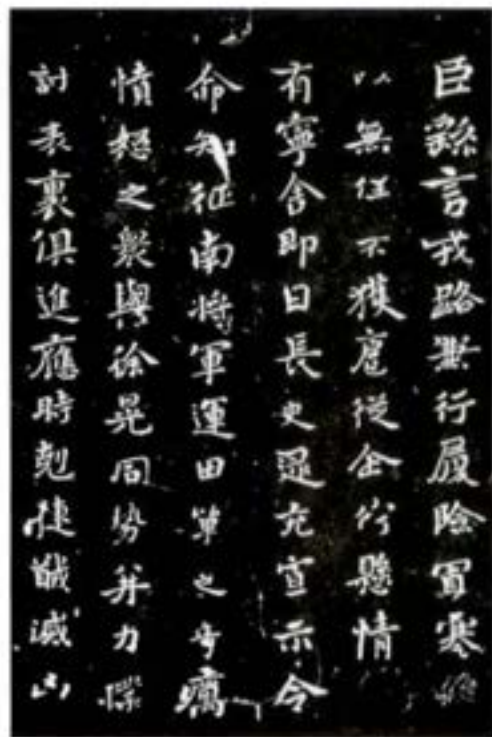 臣繇言戎路兼行履險冒寒
以無任不獲扈從企佇懸情
有寧舍即日長史逯充宣示令
命知征南將軍運田單之奇厲
憤怒之衆與徐晃同勢并力撲
討表裏俱進應時剋捷馘滅凶